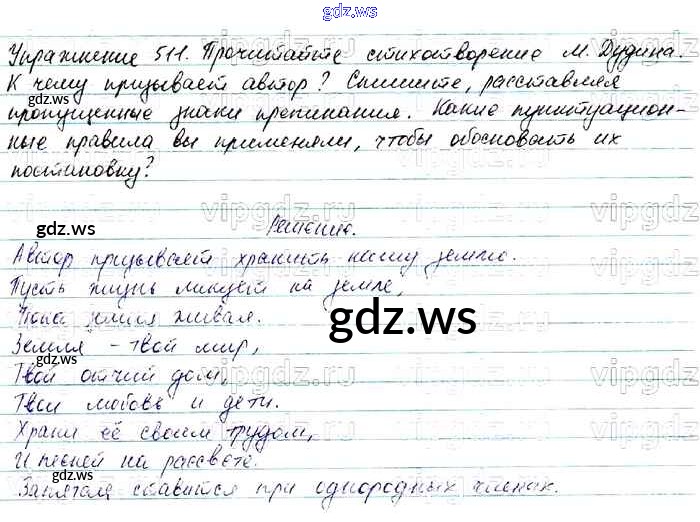 gdz.ws
Упражнение 511. Прочитайте стихотворение М. Дудина.
К чему призывает автор? Спишите, расставляя
пропущенные знаки препинания. Какие пунктуацион-
ные правила вы применяли, чтобы обосновать их
постановку?
Решение.
Автор призывает хранить нашу землю.
Пусть жизнь ликует на земле,
Пока земля живая.
Земля - твой мир,
Твой отчий дом,
Твои любовь и дети.
Храни её своим трудом,
И песней на рассвете.
Запятая ставится при однородных членах.
gdz.ws
gdz.ws
gdz.ws
gdz.ws
gdz.ws
vipgdz.ru
vipgdz.ru
vipgdz.ru
vipgdz.ru